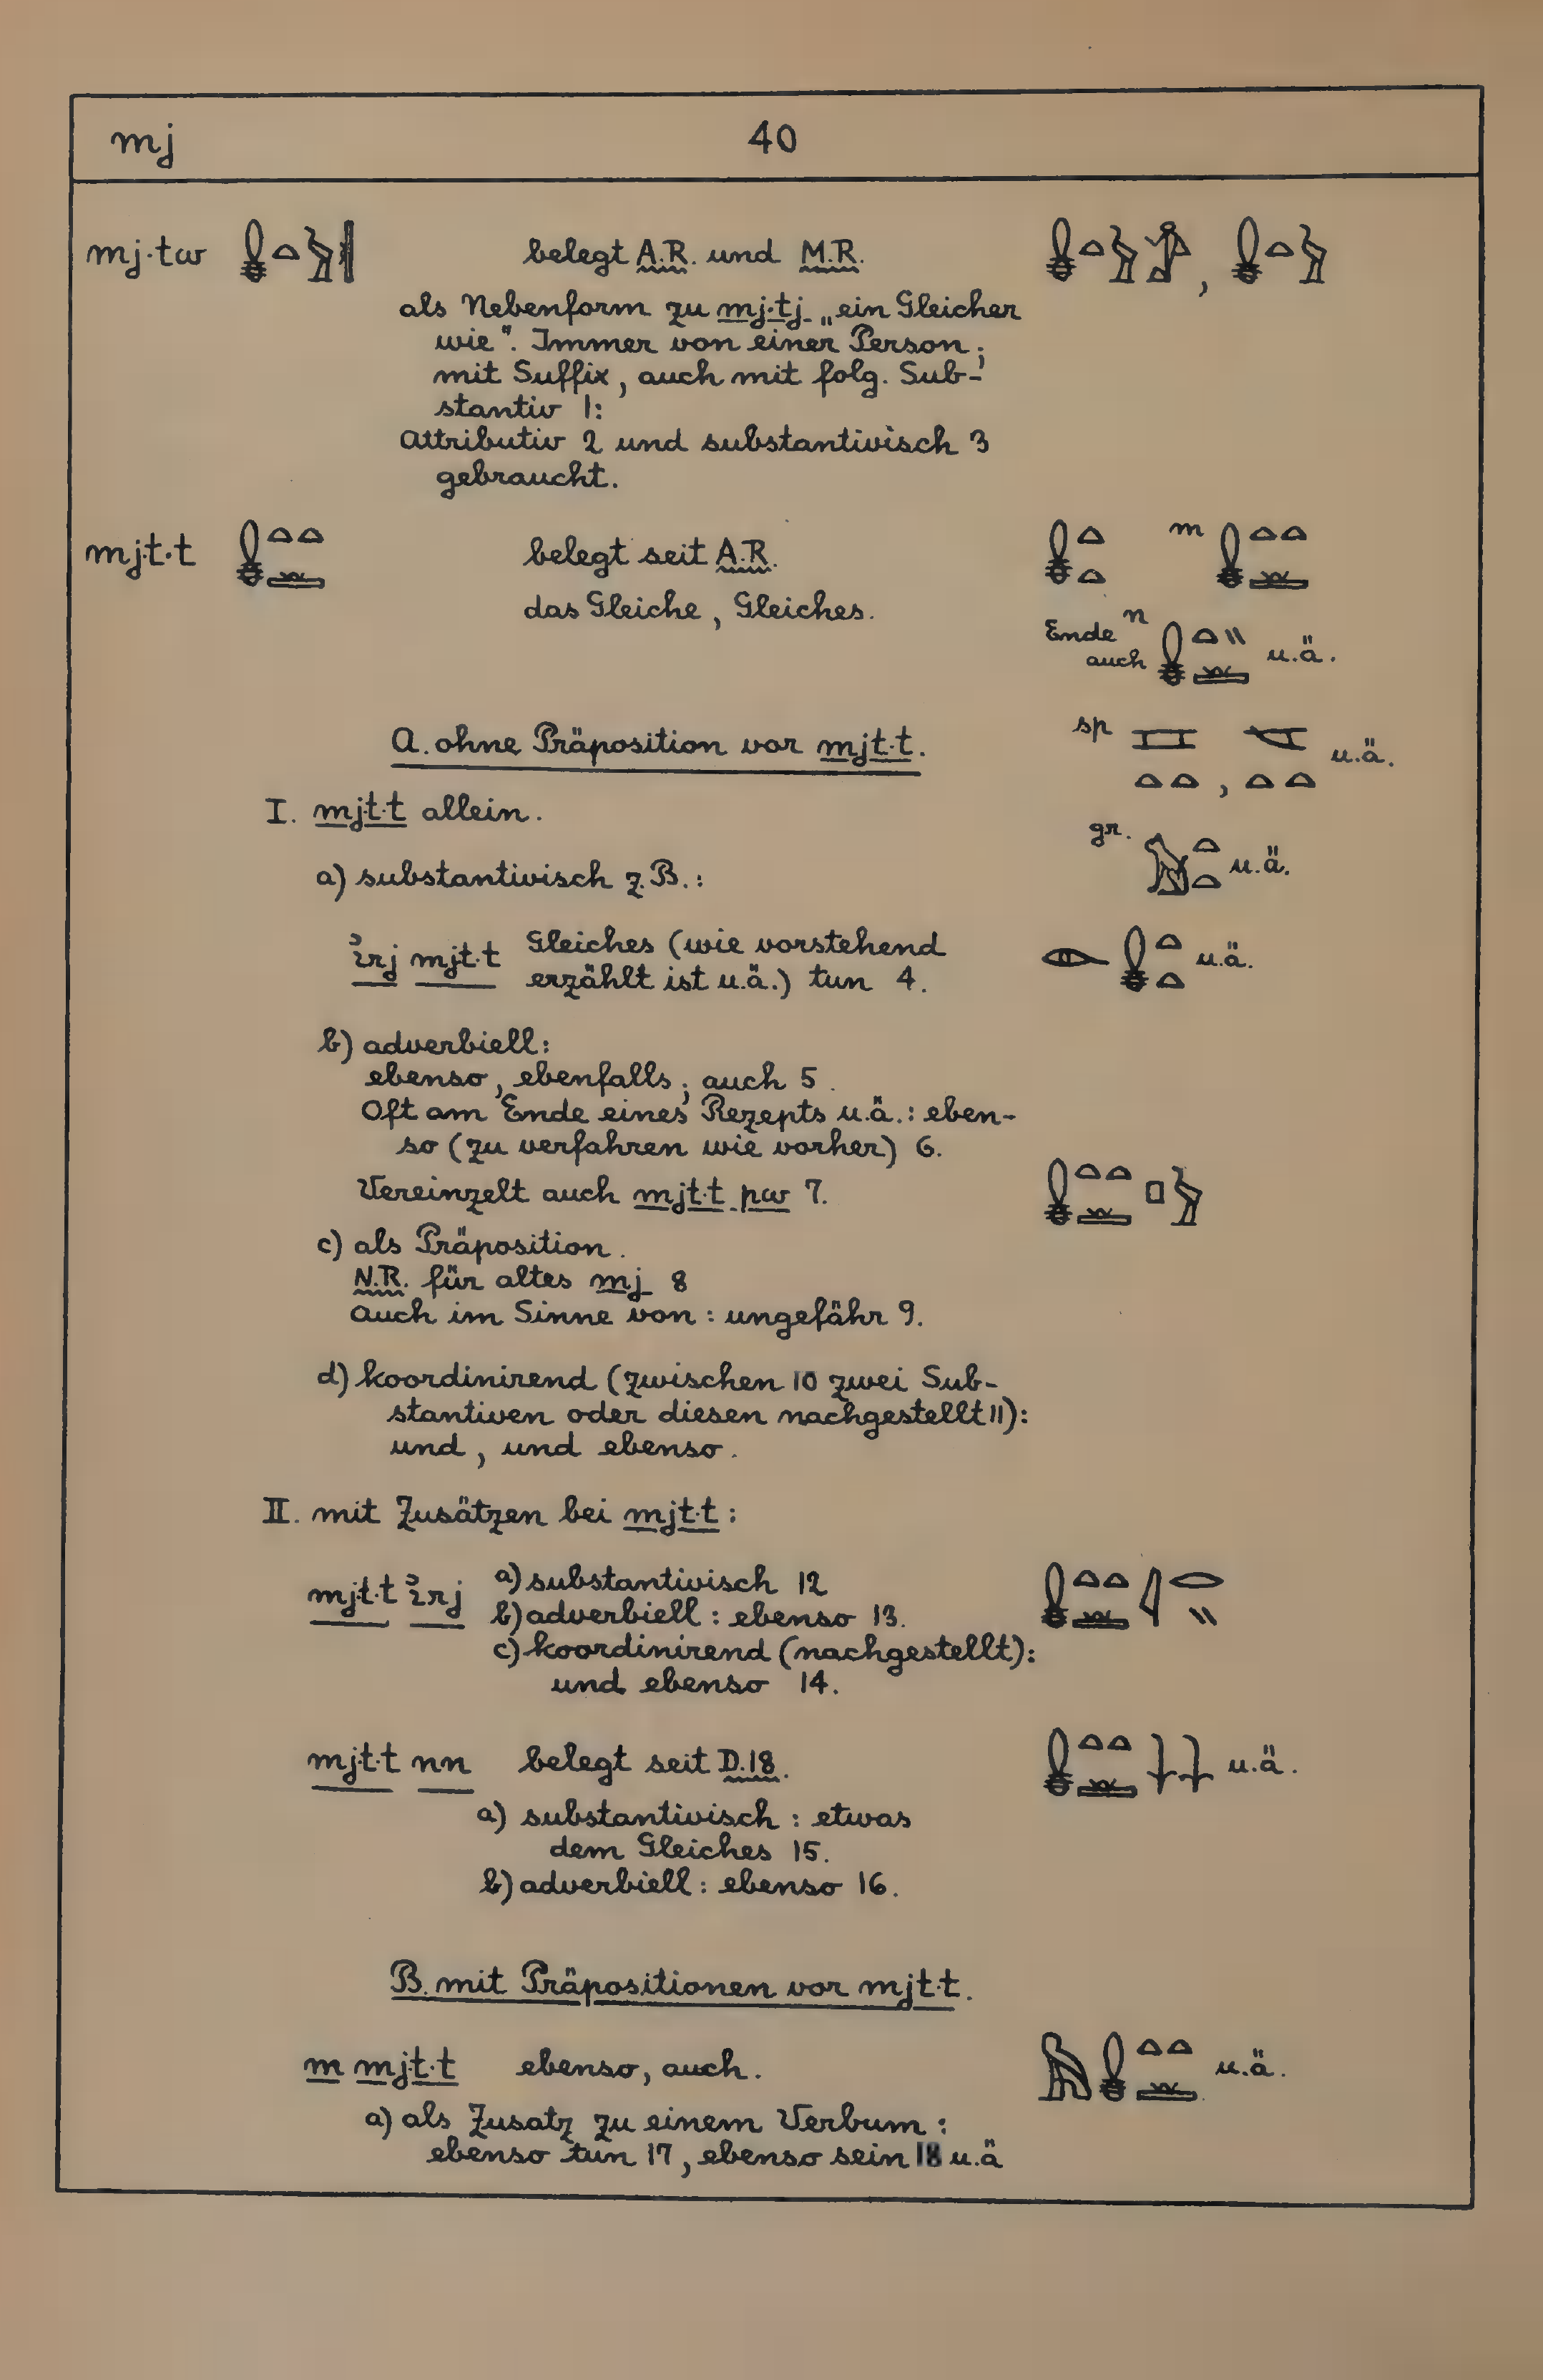 mj 40
mj·tw belegt A.R. und M.R.
als Nebenform zu mj·tj „ein Gleicher
wie". Immer von einer Person;
mit Suffix, auch mit folg. Sub-
stantiv 1:
Attributiv 2 und substantivisch 3
gebraucht.
mjt·t belegt seit A.R. m
das Gleiche, Gleiches.
Ende n
auch u.ä.
A. ohne Präposition vor mjt·t. sp , u.ä.
I. mjt·t allein.
gr. u.ä.
a) substantivisch z.B.:
ı͗rj mjt·t Gleiches (wie vorstehend u.ä.
erzählt ist u.ä.) tun 4.
b) adverbiell:
ebenso, ebenfalls; auch 5.
Oft am Ende eines Rezepts u.ä.: eben-
so (zu verfahren wie vorher) 6.
Vereinzelt auch mjt·t pw 7.
c) als Präposition.
N.R. für altes mj 8
auch im Sinne von: ungefähr 9.
d) koordinirend (zwischen 10 zwei Sub-
stantiven oder diesen nachgestellt 11):
und, und ebenso.
II. mit Zusätzen bei mjt·t:
mjt·t ı͗rj a) substantivisch 12
b) adverbiell: ebenso 13.
c) koordinirend (nachgestellt):
und ebenso 14.
mjt·t nn belegt seit D.18. u.ä.
a) substantivisch: etwas
dem Gleiches 15.
b) adverbiell: ebenso 16.
B. mit Präpositionen vor mjt·t.
m mjt·t ebenso, auch. u.ä.
a) als Zusatz zu einem Verbum:
ebenso tun 17, ebenso sein 18 u.ä